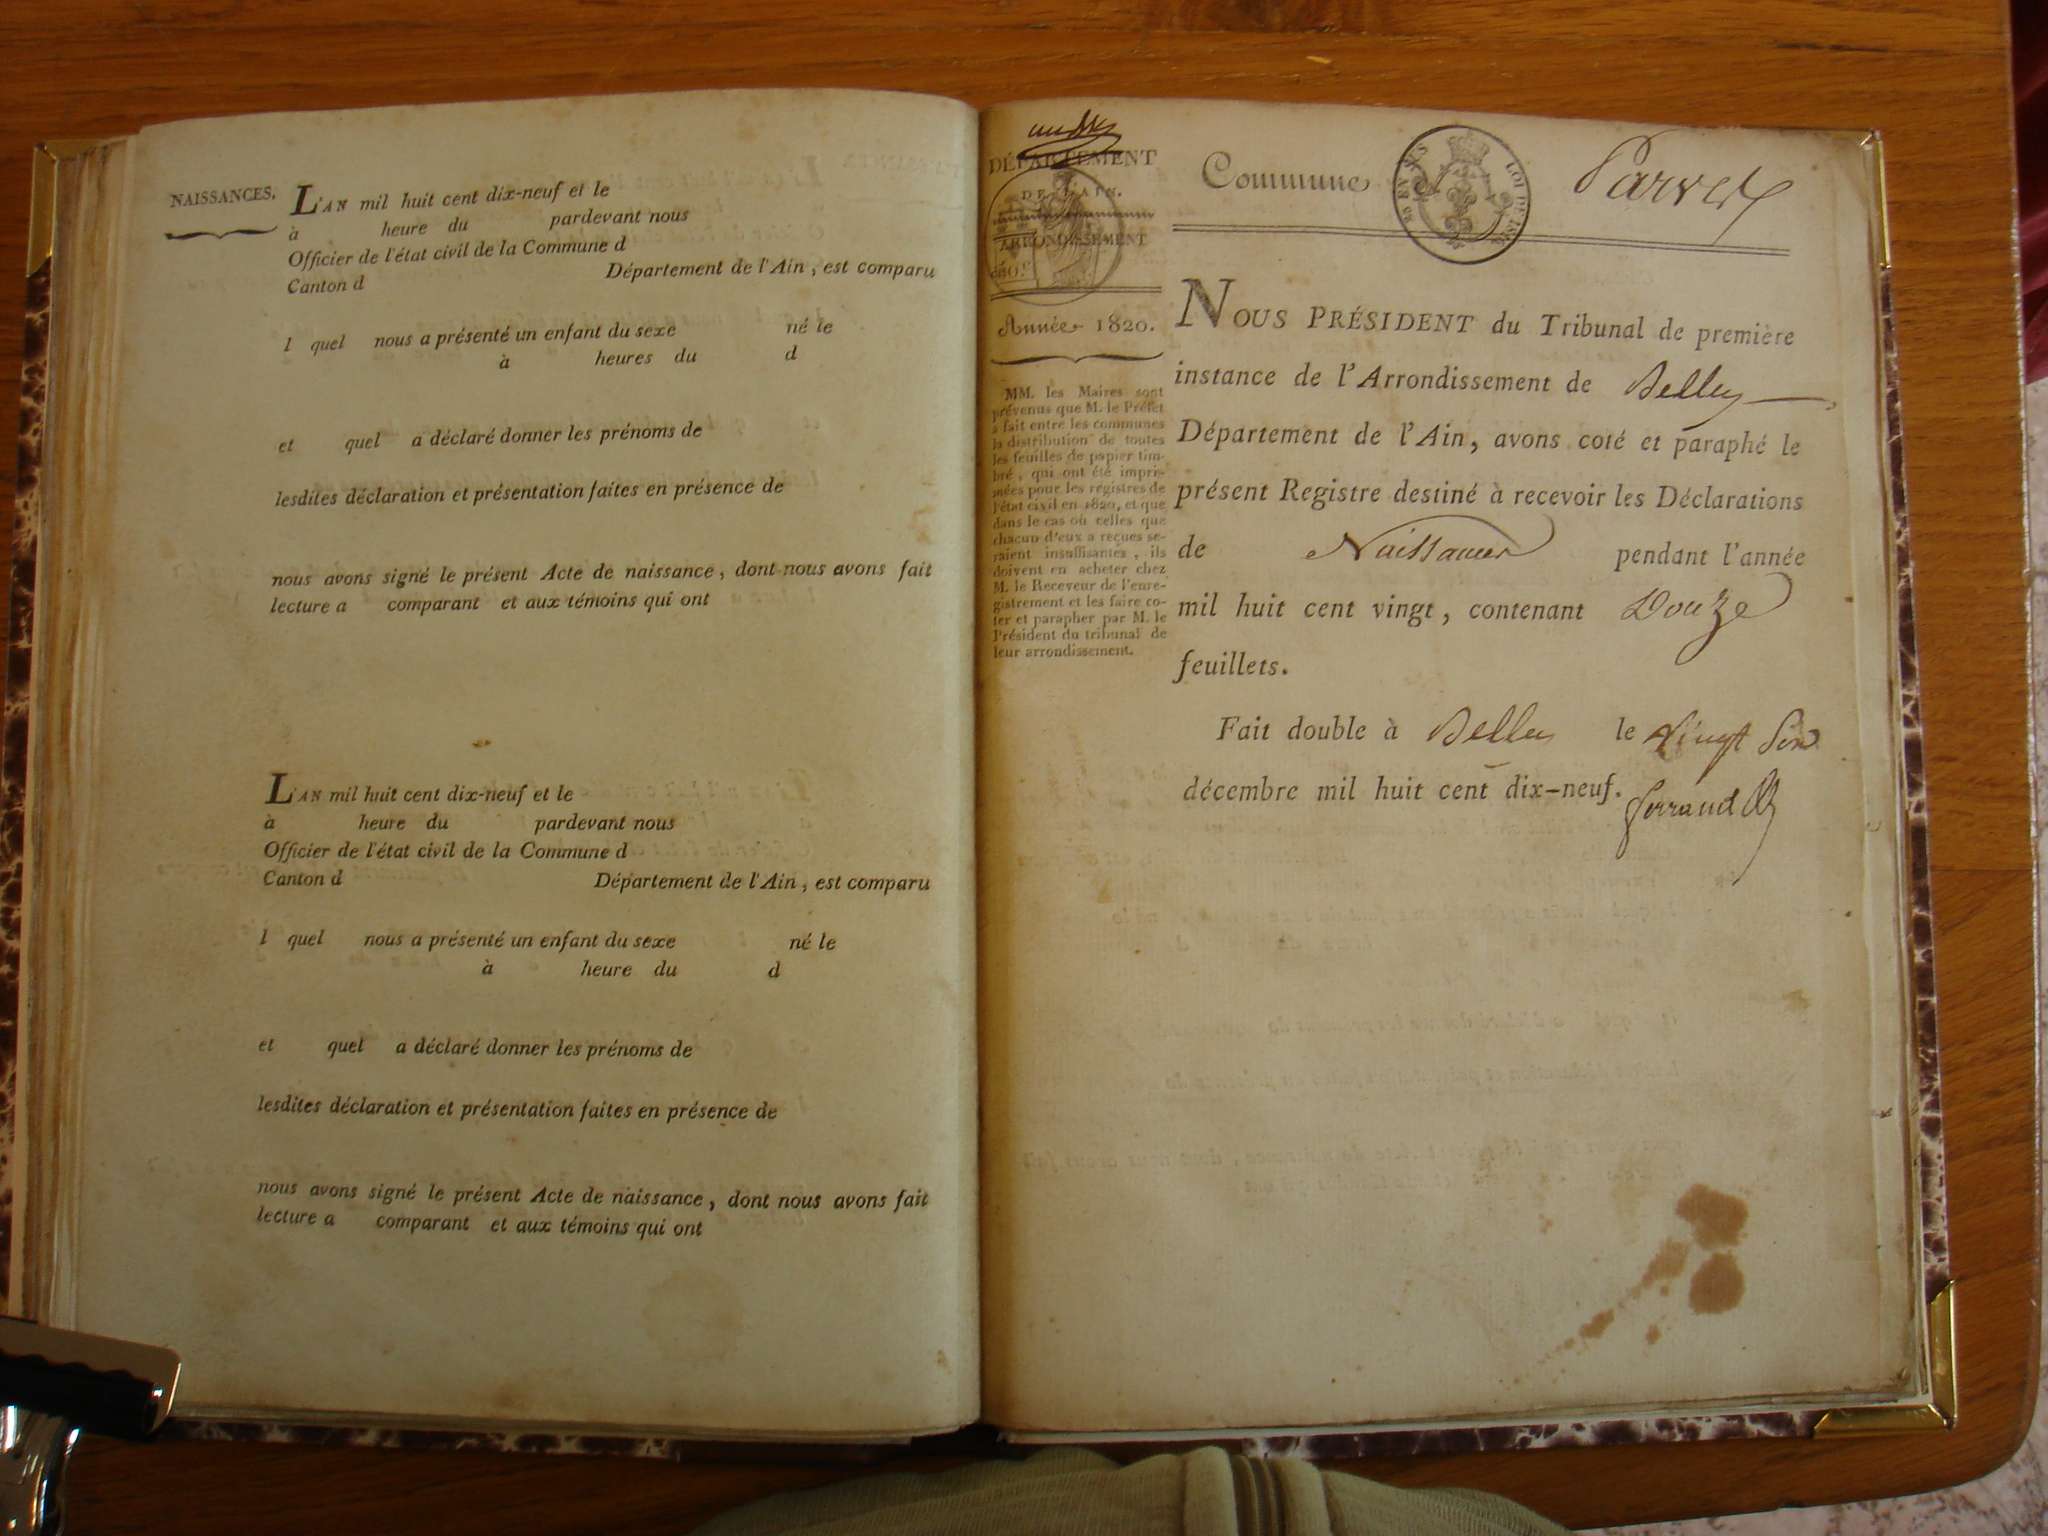 NAISSANCES.
L'AN mil huit cent dix-neuf et le
à heure du pardevant nous
Officier de l'état civil de la Commune d
Canton d Département de l'Ain, est comparu
l quel nous a présenté un enfant du sexe né le
à heures du d
et quel a déclaré donner les prénoms de
lesdites déclaration et présentation faites en présence de
nous avons signé le présent Acte de naissance, dont nous avons fait
lecture a comparant et aux témoins qui ont
L'AN mil huit cent dix-neuf et le
à heure du pardevant nous
Officier de l'état civil de la Commune d
Canton d Département de l'Ain, est comparu
l quel nous a présenté un enfant du sexe né le
à heure du d
et quel a déclaré donner les prénoms de
lesdites déclaration et présentation faites en présence de
nous avons signé le présent Acte de naissance, dont nous avons fait
lecture a comparant et aux témoins qui ont
DÉPARTEMENT
DE L'AIN.
ARRONDISSEMENT
Année 1820.
MM. les Maires sont
prévenus que M. le Préfet
a fait entre les communes
la distribution de toutes
les feuilles de papier tim-
bré, qui ont été impri-
mées pour les régistres de
l'état civil en 1820, et que
dans le cas où celles que
chacun d'eux a reçues se-
raient insuffisantes, ils
doivent en acheter chez
M. le Receveur de l'enre-
gistrement et les faire co-
ter et parapher par M. le
Président du tribunal de
leur arrondissement.
Commune Parves
NOUS PRÉSIDENT du Tribunal de première
instance de l'Arrondissement de Belley
Département de l'Ain, avons coté et paraphé le
présent Registre destiné à recevoir les Déclarations
de Naissances pendant l'année
mil huit cent vingt, contenant Douze
feuillets.
Fait double à Belley le vingt Six
décembre mil huit cent dix-neuf.